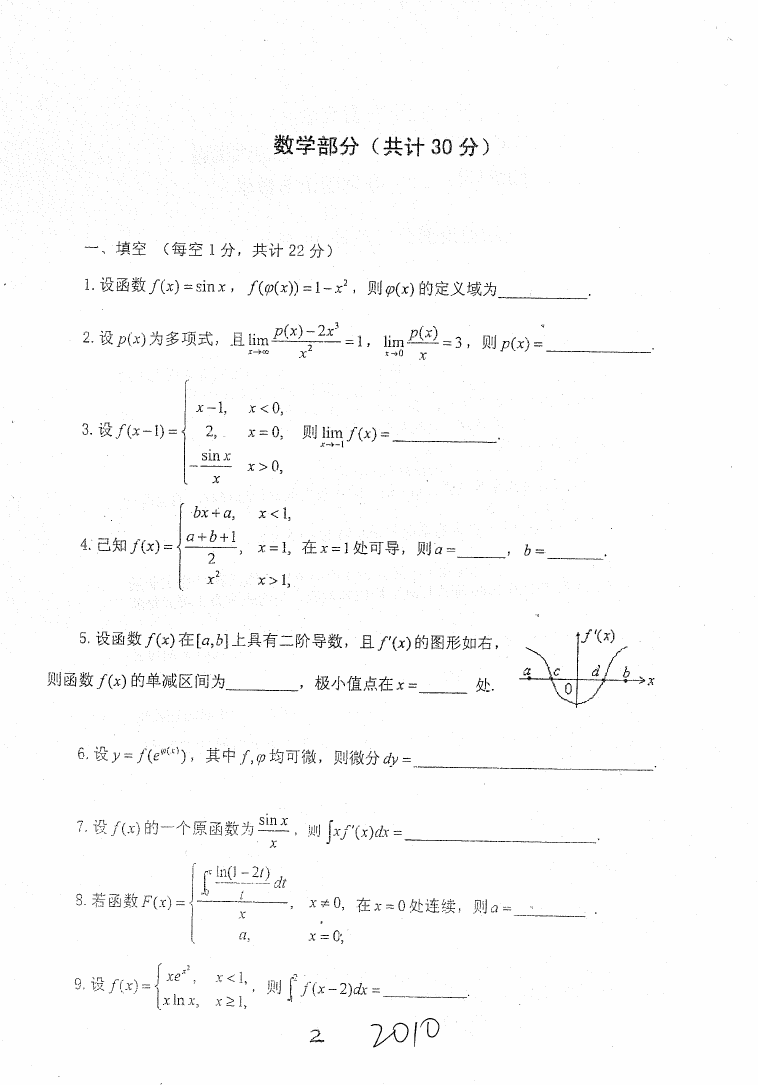 数学部分（共计 30 分）
一、填空 （每空 1 分，共计 22 分）
1. 设函数 f(x) = sin x， f(φ(x)) = 1 − x²，则 φ(x) 的定义域为__________.
2. 设 p(x) 为多项式，且 lim_{x→∞} (p(x) − 2x³)/x² = 1， lim_{x→0} p(x)/x = 3，则 p(x) = __________.
3. 设 f(x−1) = { x−1, x < 0, 2, x = 0, −(sin x)/x x > 0, 则 lim_{x→−1} f(x) = __________.
4. 已知 f(x) = { bx + a, x < 1, (a+b+1)/2, x = 1, x² x > 1, 在 x = 1 处可导，则 a = ______， b = ______.
5. 设函数 f(x) 在 [a,b] 上具有二阶导数，且 f′(x) 的图形如右，
f′(x)
a c 0 d b x
则函数 f(x) 的单减区间为________，极小值点在 x = ______ 处.
6. 设 y = f(e^{φ(x)})，其中 f,φ 均可微，则微分 dy = __________.
7. 设 f(x) 的一个原函数为 (sin x)/x，则 ∫xf′(x)dx = __________.
8. 若函数 F(x) = { (∫_0^x (ln(1−2t))/t dt)/x, x ≠ 0, a, x = 0; 在 x = 0 处连续，则 a = ________.
9. 设 f(x) = { xe^{x²}, x < 1, x ln x, x ≥ 1, ，则 ∫_1^2 f(x−2)dx = ________.
2 2010